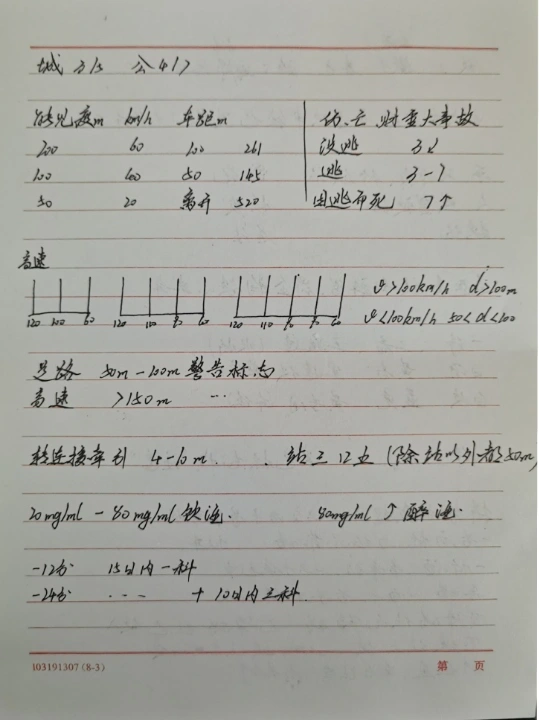 城 3/5 公 4/7
能见度m km/h 车距m
200 60 100 261
100 40 50 145
50 20 离开 520
伤.亡 财重大事故
没逃 3↓
逃 3-7
因逃而死 7↑
高速
120 100 60 120 110 90 60 120 110 90 60
v>100km/h d>100m
v<100km/h 50<d<100
道路 50m-100m 警告标志
高速 >150m ...
转连接牵引 4-10m. 站三 12五 (除站以外都50m)
20mg/ml - 80mg/ml 饮酒. 80mg/ml ↑ 醉酒.
-12分 15日内一科
-24分 ... + 10日内三科
103191307 (8-3) 第 页